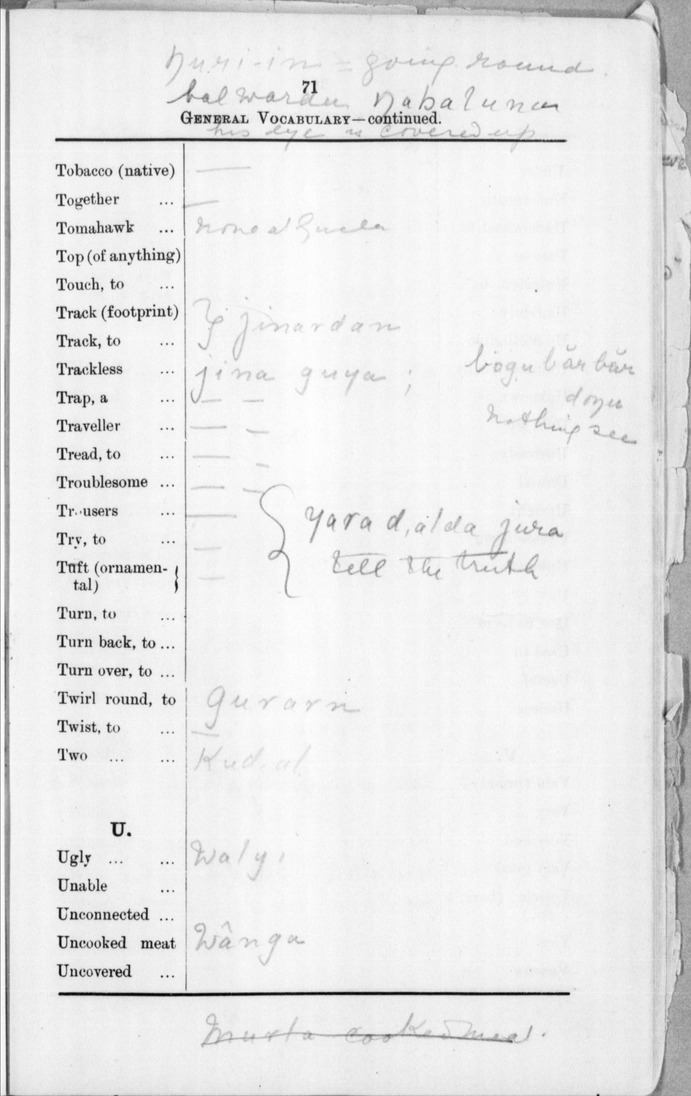 ŋuri-in = going round
71
balwardu ŋabaluna
GENERAL VOCABULARY—continued.
his eye is covered up
Tobacco (native) —
Together ... —
Tomahawk ...
Top (of anything)
Touch, to ...
Track (footprint)
Track, to ... jinardan
Trackless ... jina guya ; bogu bär bär
Trap, a ... — — doŋu
Traveller ... — — nothing see
Tread, to ... — —
Troublesome ... — —
Trousers ... — yara d,alda jura
Try, to ... —
Tuft (ornamental) — tell the truth
Turn, to ...
Turn back, to ...
Turn over, to ...
Twirl round, to gurarn
Twist, to ... —
Two ... ... Kud,al
U.
Ugly ... ... Walyi
Unable ...
Unconnected ...
Uncooked meat Wânga
Uncovered ...
Murta cooked meat.